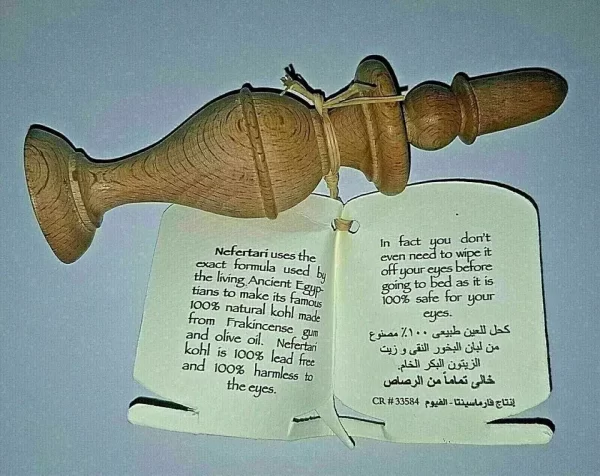 Nefertari uses the
exact formula used by
the living Ancient Egyp-
tians to make its famous
100% natural kohl made
from Frakincense gum
and olive oil. Nefertari
kohl is 100% lead free
and 100% harmless to
the eyes.
In fact you don't
even need to wipe it
off your eyes before
going to bed as it is
100% safe for your
eyes.
كحل للعين طبيعى ١٠٠٪ مصنوع
من لبان البخور النقى و زيت
الزيتون البكر الخام.
خالى تماماً من الرصاص
CR # 33584 إنتاج فارماسينتا - الفيوم